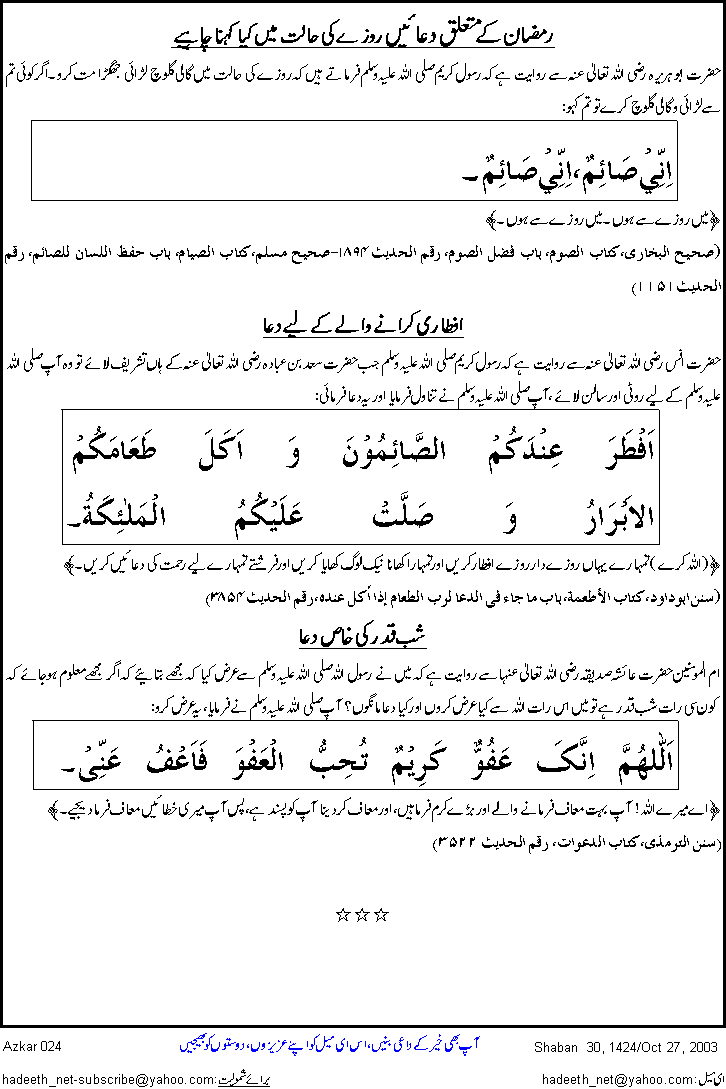 رمضان کے متعلق دعائیں روزے کی حالت میں کیا کہنا چاہیے
حضرت ابو ہریرہ رضی اللہ تعالیٰ عنہ سے روایت ہے کہ رسول کریم صلی اللہ علیہ وسلم فرماتے ہیں کہ روزے کی حالت میں گالی گلوچ لڑائی جھگڑا مت کرو۔ اگر کوئی تم
سے لڑائی و گالی گلوچ کرے تو تم کہو:
اِنِّيْ صَائِمٌ، اِنِّيْ صَائِمٌ ۔
﴿میں روزے سے ہوں ۔ میں روزے سے ہوں ۔﴾
(صحیح البخاری، کتاب الصوم، باب فضل الصوم، رقم الحدیث ۱۸۹۴-صحیح مسلم، کتاب الصیام، باب حفظ اللسان للصائم، رقم
الحدیث ۱۱۵۱)
افطاری کرانے والے کے لیے دعا
حضرت انس رضی اللہ تعالیٰ عنہ سے روایت ہے کہ رسول کریم صلی اللہ علیہ وسلم جب حضرت سعد بن عبادہ رضی اللہ تعالیٰ عنہ کے ہاں تشریف لائے تو وہ آپ صلی اللہ
علیہ وسلم کے لیے روٹی اور سالن لائے، آپ صلی اللہ علیہ وسلم نے تناول فرمایا اور یہ دعا فرمائی:
اَفْطَرَ عِنْدَكُمْ الصَّائِمُوْنَ وَ اَكَلَ طَعَامَكُمْ
الاَبْرَارُ وَ صَلَّتْ عَلَيْكُمُ الْمَلٰئِكَةُ۔
﴿(اللہ کرے) تمہارے یہاں روزے دار روزے افطار کریں اور تمہارا کھانا نیک لوگ کھایا کریں اور فرشتے تمہارے لیے رحمت کی دعائیں کریں۔﴾
(سنن ابوداود، کتاب الأطعمة، باب ما جاء فی الدعا لرب الطعام إذا أكل عنده، رقم الحدیث ۳۸۵۴)
شب قدر کی خاص دعا
ام المومنین حضرت عائشہ صدیقہ رضی اللہ تعالیٰ عنہا سے روایت ہے کہ میں نے رسول اللہ صلی اللہ علیہ وسلم سے عرض کیا کہ مجھے بتایئے کہ اگر مجھے معلوم ہو جائے کہ
کون سی رات شب قدر ہے تو میں اس رات اللہ سے کیا عرض کروں اور کیا دعا مانگوں؟ آپ صلی اللہ علیہ وسلم نے فرمایا، یہ عرض کرو:
اَللّٰهُمَّ اِنَّکَ عَفُوٌّ کَرِيْمٌ تُحِبُّ الْعَفْوَ فَاَعْفُ عَنِّیْ۔
﴿اے میرے اللہ! آپ بہت معاف فرمانے والے اور بڑے کرم فرما ہیں، اور معاف کر دینا آپ کو پسند ہے، پس آپ میری خطائیں معاف فرما دیجیے۔﴾
(سنن الترمذی، کتاب الدعوات، رقم الحدیث ۳۵۲۲)
آپ بھی خیر کے داعی بنیں، اس ای میل کو اپنے عزیزوں، دوستوں کو بھیجیں
Azkar 024
Shaban 30, 1424/Oct 27, 2003
ای میل: hadeeth_net@yahoo.com
برائے شمولیت: hadeeth_net-subscribe@yahoo.com